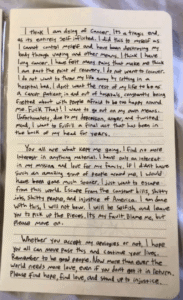 I think I am dying of Cancer. It's a tragic end,
as its entirely self-inflicted. I did this to myself as
I cannot control myself and have been destroying my
body through vaping and other means. I think I have
lung cancer. I have felt many pains that make me think
I am past the point of recovery. I do not want to recover.
I do not want to throw my life away to sitting in a
hospital bed. I don't want the rest of my life to be as
a cancer patient in and out of hospitals, constantly being
fretted about with people afraid to be too happy around
me. Fuck That! I want to go out on my own means.
Unfortunately, due to my depression, anger, and twisted
mind, I want to fulfill a final act that has been in
the back of my head for years.
You all are what keep me going. I find no more
interest in anything material. I have only an interest
in my mission, and love for my family. If I didn't have
such an amazing group of people around me, I would
have been gone much sooner. I just want to escape
from this world. Escape from the constant bills, shitty
jobs, shitty people, and injustice of America. I am done
with this. I will not bow. I will be selfish, and leave
you to pick up the pieces. It's my fault. Blame me, but
please move on.
Whether you accept my apologies or not, I hope
you all can move past this and continue your lives.
Remember to be good people. Now more than ever the
world needs more love, even if you don't get it in return.
Please find hope, find love, and stand up to injustice.